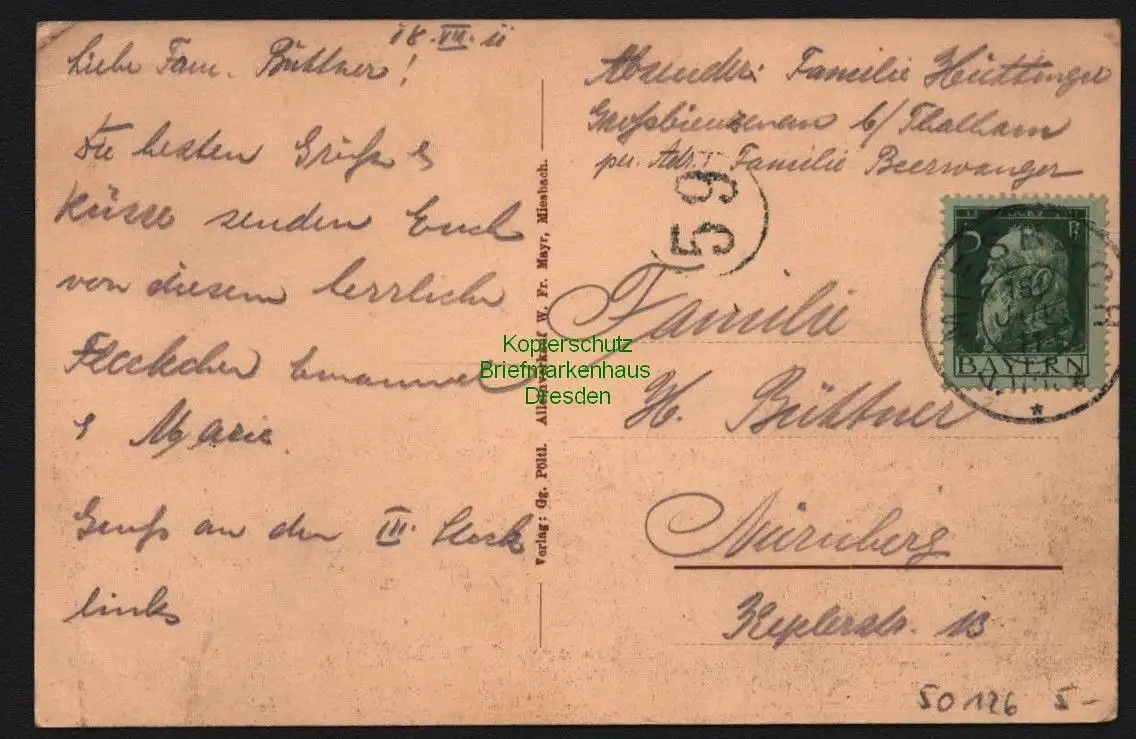 18.VII.11
Liebe Fam. Büttner!
Die besten Grüße &
Küsse senden Euch
von diesem herrliche
Fleckchen Emanuel
& Marie.
Gruß an den III Stock
links
Verlag: Gg. Pöltl. Alleinverkauf W. Fr. Mayr, Miesbach.
Absender: Familie Hüttinger
Großbienzenau b/ Thalham
per Adr. Familie Beerwanger
59
5 Pf
BAYERN
MIESBACH
18.
JUL
11
Familie
H. Büttner
Nürnberg
Keplerstr. 13
50126 5-
Kopierschutz
Briefmarkenhaus
Dresden